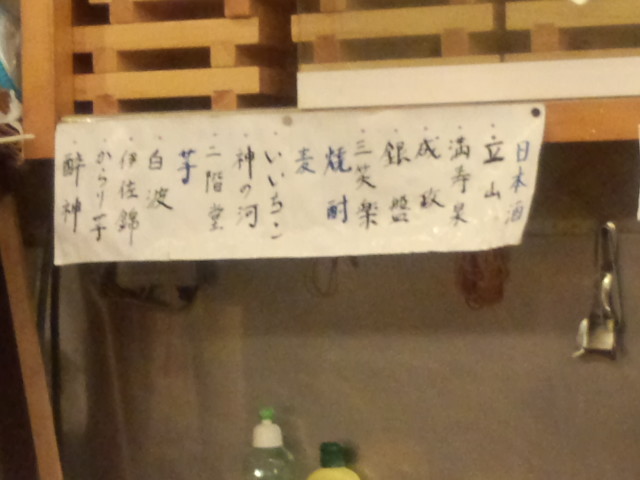 日本酒
・立山
・満寿泉
・成政
・銀盤
・三笑楽
焼酎
麦
・いいちこ
・神の河
・二階堂
芋
・白波
・伊佐錦
・からり芋
・酔神